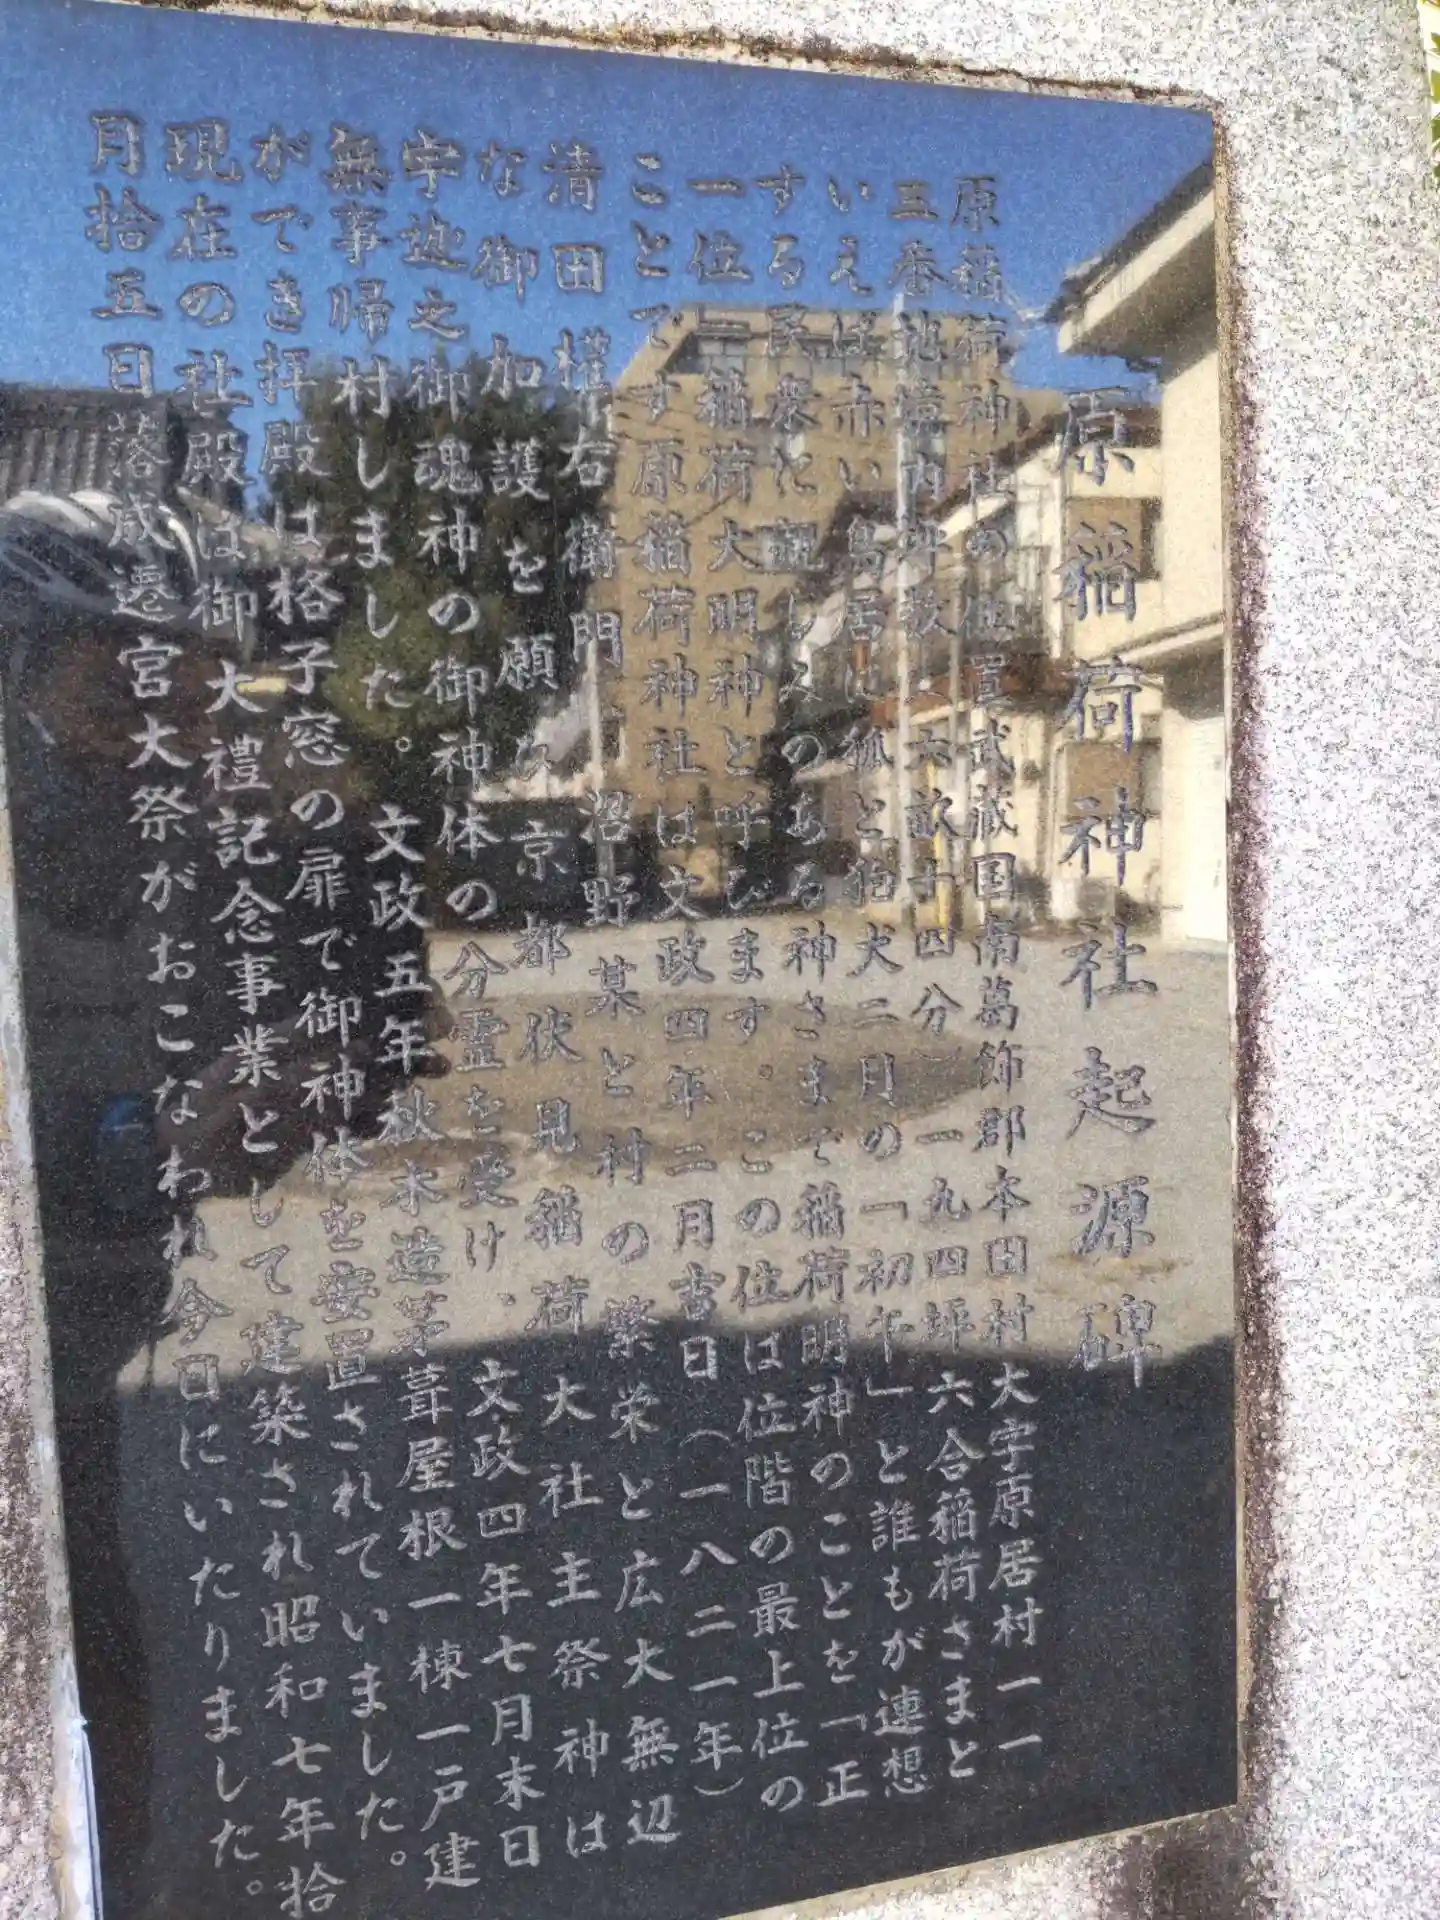 原稲荷神社起源碑
原稲荷神社の位置武蔵国南葛飾郡本田村大字原居村一一
三番地境内坪数(六畝十四分)一九四坪六合稲荷さまと
いえば赤い鳥居に狐と狛犬二月の「初午」と誰もが連想
する民衆に親しみのある神さまで稲荷明神のことを「正
一位」稲荷大明神と呼びます。この位は位階の最上位の
ことです原稲荷神社は文政四年二月吉日(一八二一年)
清田権右衛門、沼野某と村の繁栄と広大無辺
な御加護を願 京都伏見稲荷大社主祭神は
宇迦之御魂神の御神体の分霊を受け、文政四年七月末日
無事帰村しました。文政五年秋木造茅葺屋根一棟一戸建
ができ拝殿は格子窓の扉で御神体を安置されていました。
現在の社殿は御大禮記念事業として建築され昭和七年拾
月拾五日落成遷宮大祭がおこなわれ今日にいたりました。